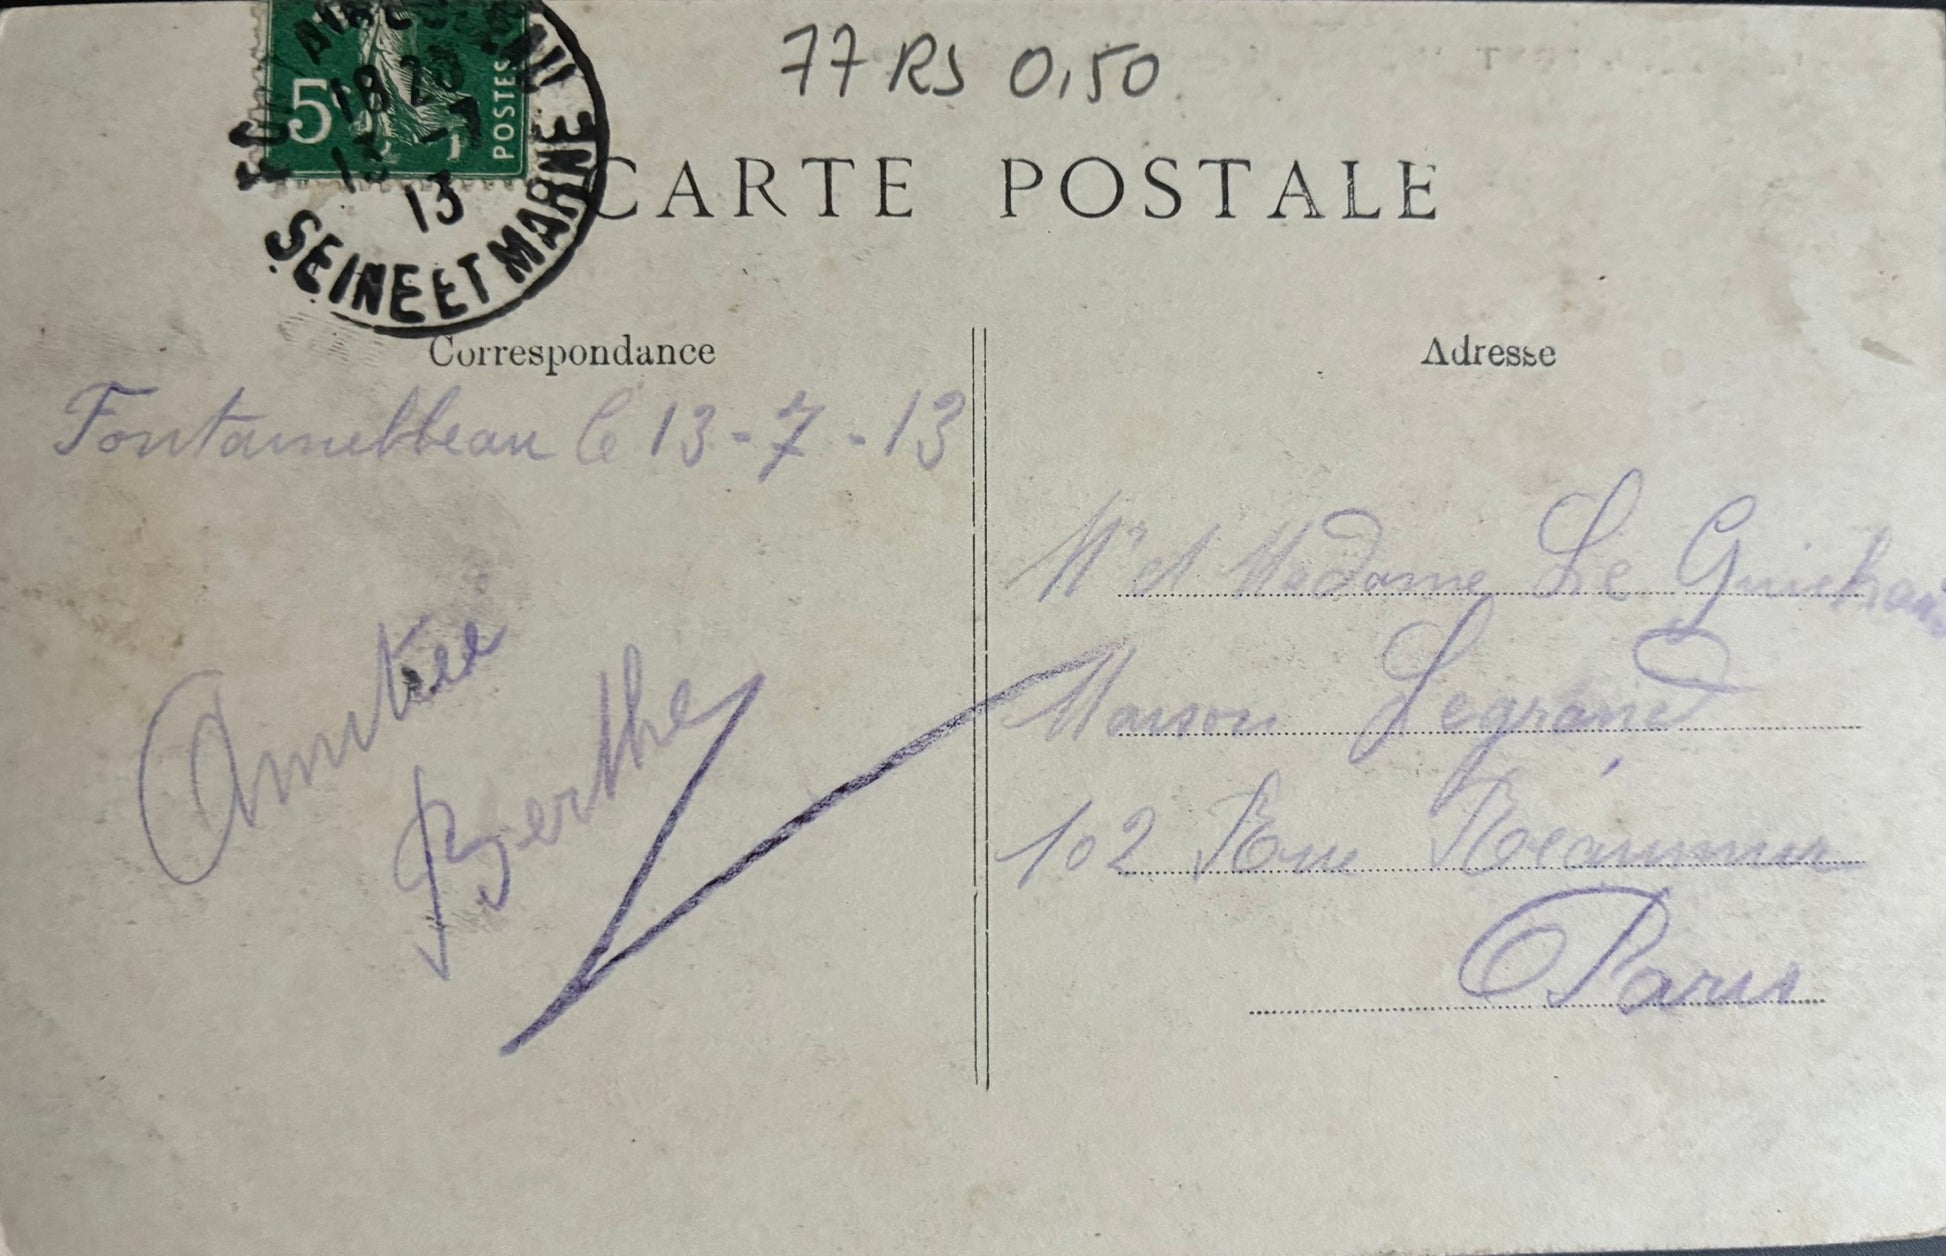 77 RS 0,50
5c
POSTES
18 20
13 -7
13
SEINE ET MARNE
CARTE POSTALE
Correspondance
Adresse
Fontainebleau le 13-7-13
Amitiée
Berthe
Mr et Madame Le
Maison Legrand
102 Rue Réaumur
Paris